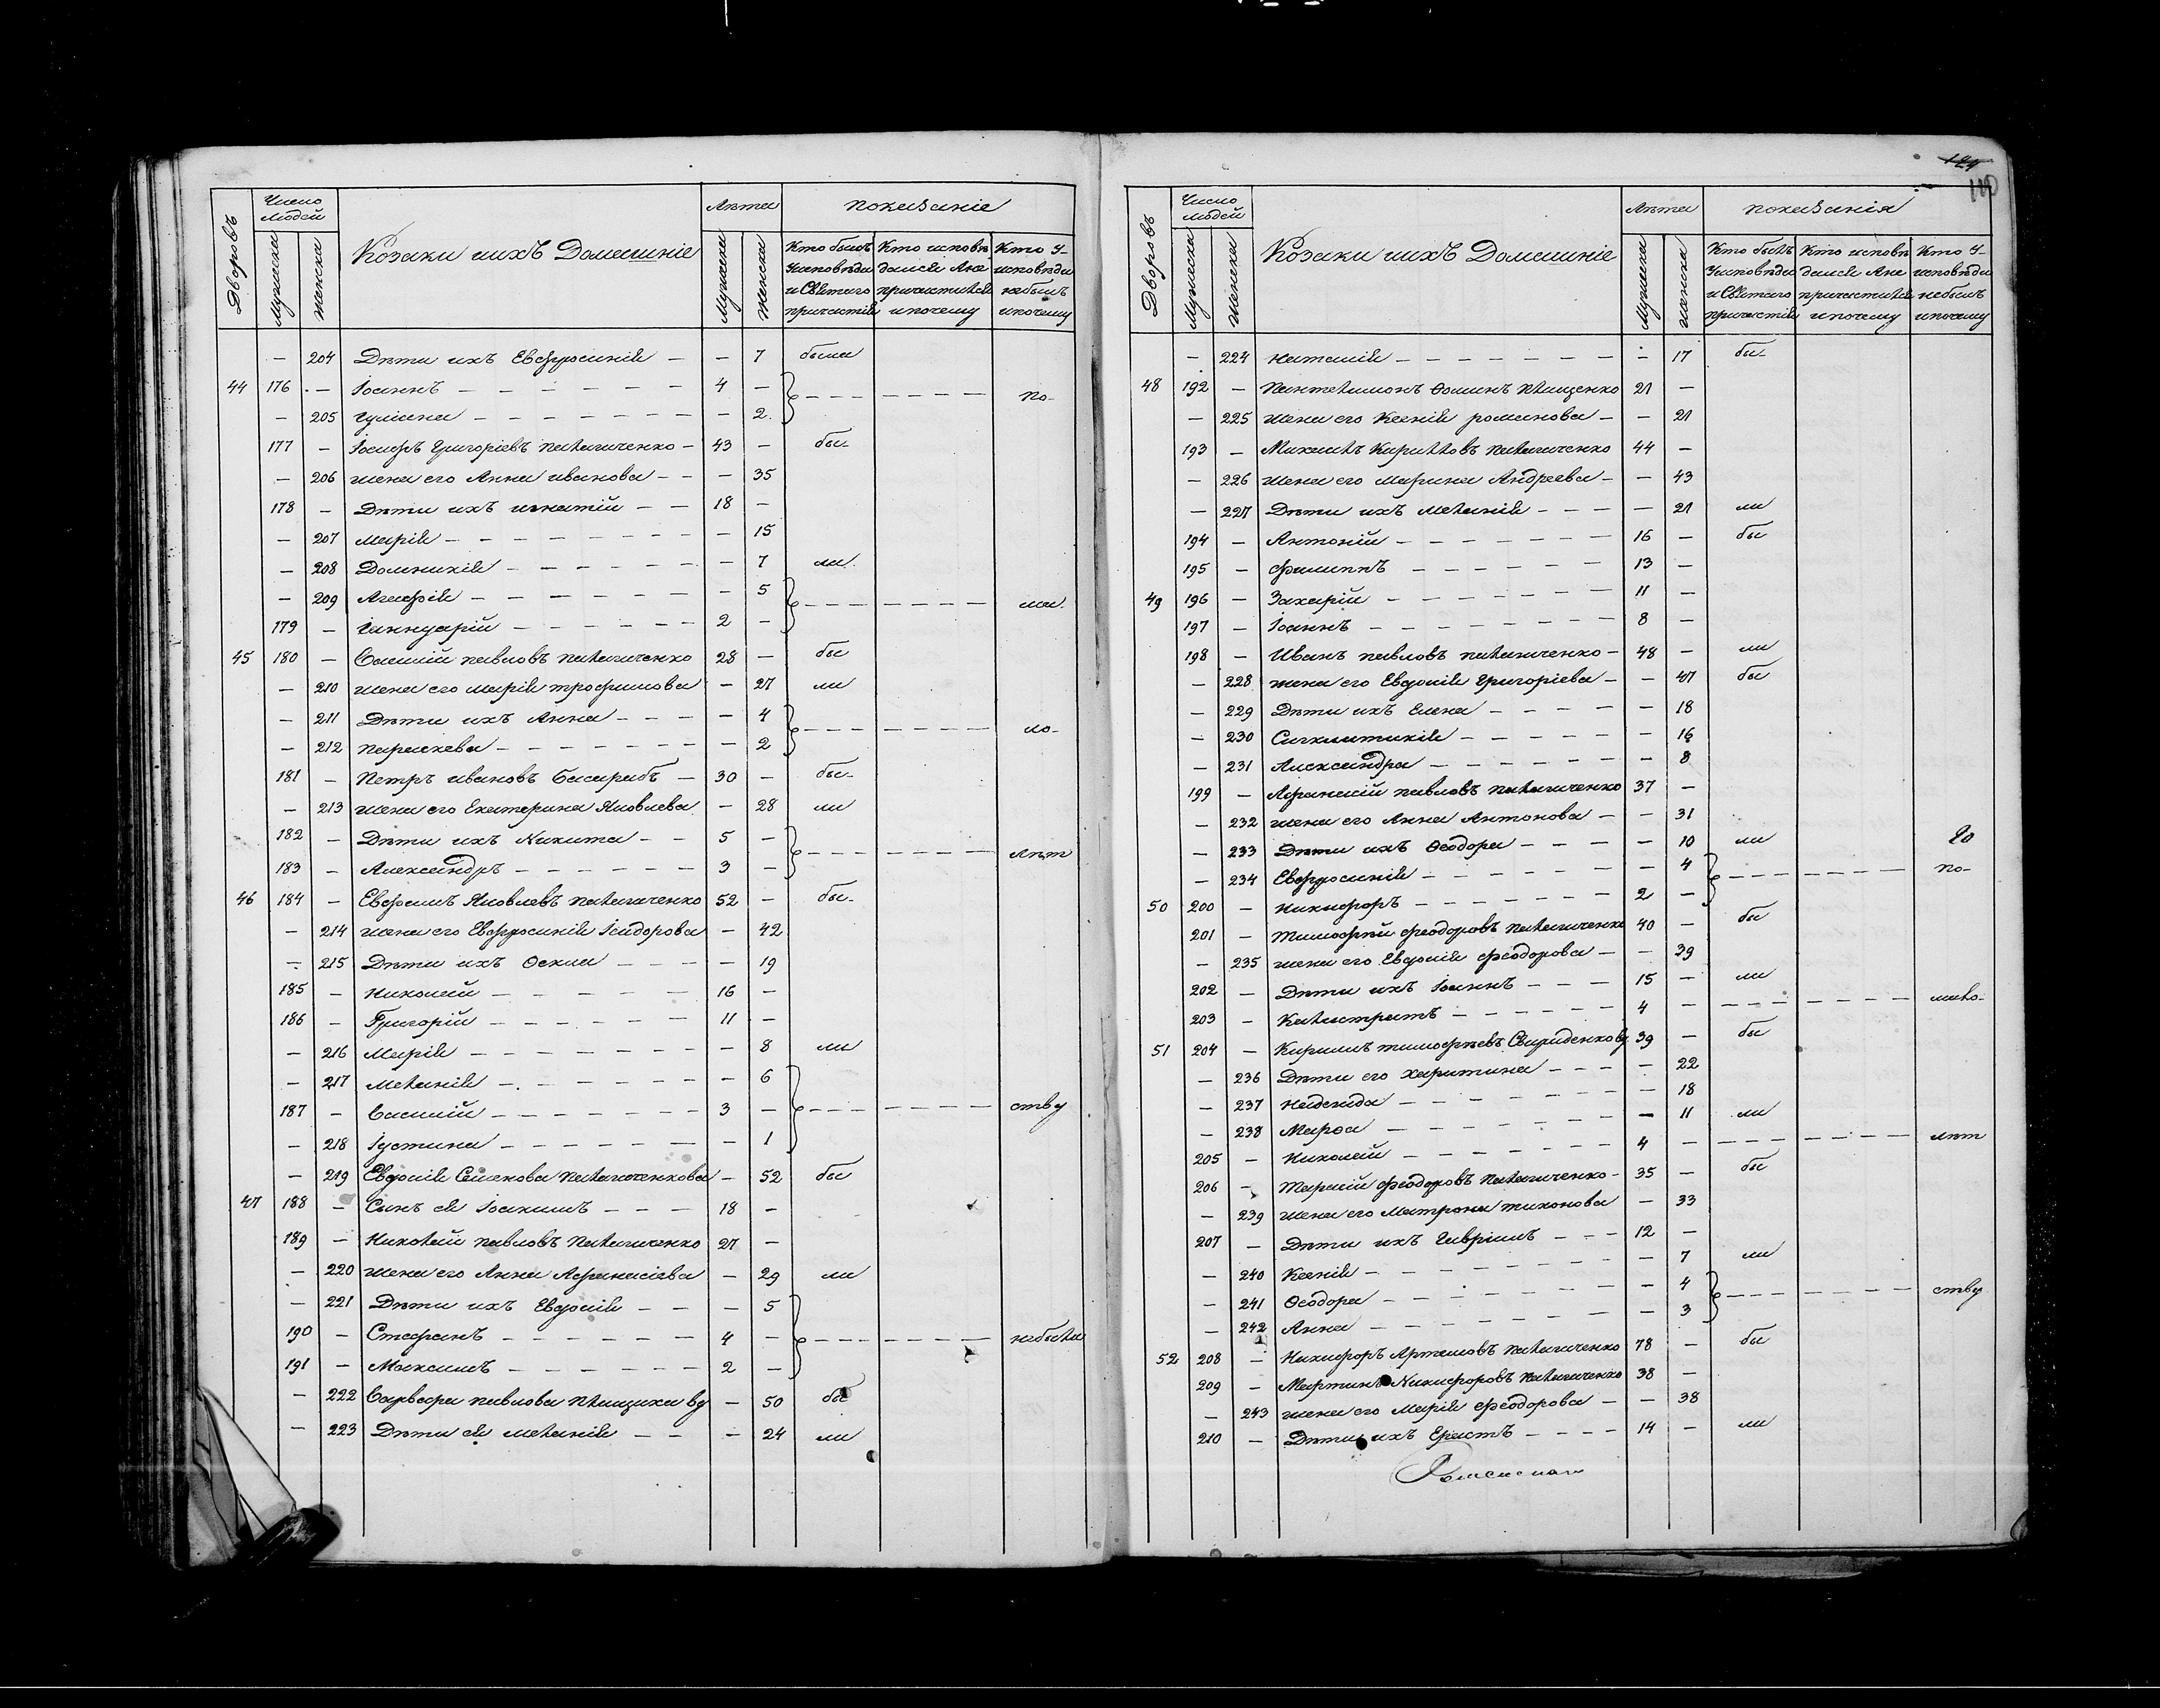 Дворовъ
Число людей
Мужеска
Женска
Козаки ихъ Домашніе
Лѣта
Мужеска
Женска
показаніе
Кто былъ Уисповѣди и Святаго причастія
Кто исповѣдался Ане причастился ипочему
Кто У-исповѣди небылъ ипочему
— 204 Дѣти ихъ Евфросинія — — 7 была
44 176 — Іоаннъ — 4 —
по-
— 205 Іуліана — — 2
177 — Іосифъ Григоріевъ Палагиченко — 43 — бы-
— 206 жена его Анна иванова — — 35
178 — Дѣти ихъ игнатій — 18 —
— 207 Марія — — 15
— 208 Домникія — — 7 ли
— 209 Агафія — — 5
мал.
179 — Іаннуарій — 2 —
45 180 — Василій павловъ палагиченко 28 — бы
— 210 жена его марія трофимова — 27 ли
— 211 Дѣти ихъ Анна — — 4
ло-
— 212 параскева — — 2
181 — Петръ ивановъ Басарабъ — 30 — бы-
— 213 жена его Екатерина Яковлева — 28 ли
182 — Дѣти ихъ Никита — 5 —
лѣт
183 — Александръ — 3 —
46 184 — Евфимъ Яковлевъ палагиченко 52 — бы-
— 214 жена его Евфросинія Ісидорова — 42
— 215 Дѣти ихъ Өекла — — 19
185 — Николай — 16 —
186 — Григорій — 11 —
— 216 Марія — — 8 ли
— 217 Меланія — — 6
187 — Василій — 3 —
ству
— 218 Іустина — — 1
— 219 Евдокія Семенова палагиченкова — 52 бы
47 188 — Сынъ ея Іоакимъ — 18 —
189 — Николай павловъ палагиченко 27 —
— 220 жена его Анна Афанасіева — 29 ли
— 221 Дѣти ихъ Евдокія — — 5
190 — Стефанъ — 4 —
небыли
191 — Максимъ — 2 —
— 222 Варвара павлова плищиха вд — 50 бы
— 223 Дѣти ея меланія — — 24 ли
Дворовъ
Число людей
Мужеска
Женска
Козаки ихъ Домашніе
Лѣта
Мужеска
женска
показанія
Кто былъ Уисповѣди и Святаго причастія
Кто исповѣдался Ане причастился ипочему
Кто У-исповѣди небылъ ипочему
— 224 наталія — — 17 бы-
48 192 — Пантелимонъ Өоминъ плищенко 21 —
— 225 жена его Ксенія романова — — 21
193 — Михаилъ Кирилловъ палагиченко 44 —
— 226 жена его марина Андреева — — 43
— 227 Дѣти ихъ меланія — — 21 ли
194 — Антоній — 16 — бы
195 — филиппъ — 13 —
49 196 — Захарій — 11 —
197 — Іоаннъ — 8 —
198 — Иванъ павловъ палагиченко — 48 — ли
— 228 жена его Евдокія григоріева — — 47 бы
— 229 Дѣти ихъ Елена — — 18
— 230 Сигклитикія — — 16
— 231 Александра — — 8
199 — Афанасій павловъ палагиченко 37 —
— 232 жена его Анна Антонова — — 31
— 233 Дѣти ихъ Өеодора — — 10 ли
— 234 Евфросинія — — 4
по-
50 200 — никифоръ — 2 —
201 — тимофей феодоровъ палагиченко 40 — бы
— 235 жена его Евдокія феодорова — — 39
202 — Дѣти ихъ Іоаннъ — 15 — ли
203 — Калистратъ — 4 — мало-
51 204 — Кирилъ тимофѣевъ Свириденко вд. 39 — бы
— 236 Дѣти его харитина — — 22
— 237 надежда — — 18
— 238 Марфа — — 11 ли
205 — Николай — 4 — лѣт
206 — Тарасій феодоровъ палагиченко — 35 — бы
— 239 жена его Матрона тихонова — 33
207 — Дѣти ихъ Гавріилъ — 12 —
— 240 Ксенія — — 7 ли
— 241 Өеодора — — 4
ству
— 242 Анна — — 3
52 208 — Никифоръ Артемовъ палагиченко 78 — бы
209 — Мартинъ Никифоровъ палагиченко 38 —
— 243 жена его Марія феодорова — — 38
210 — Дѣти ихъ Ерастъ — 14 — ли